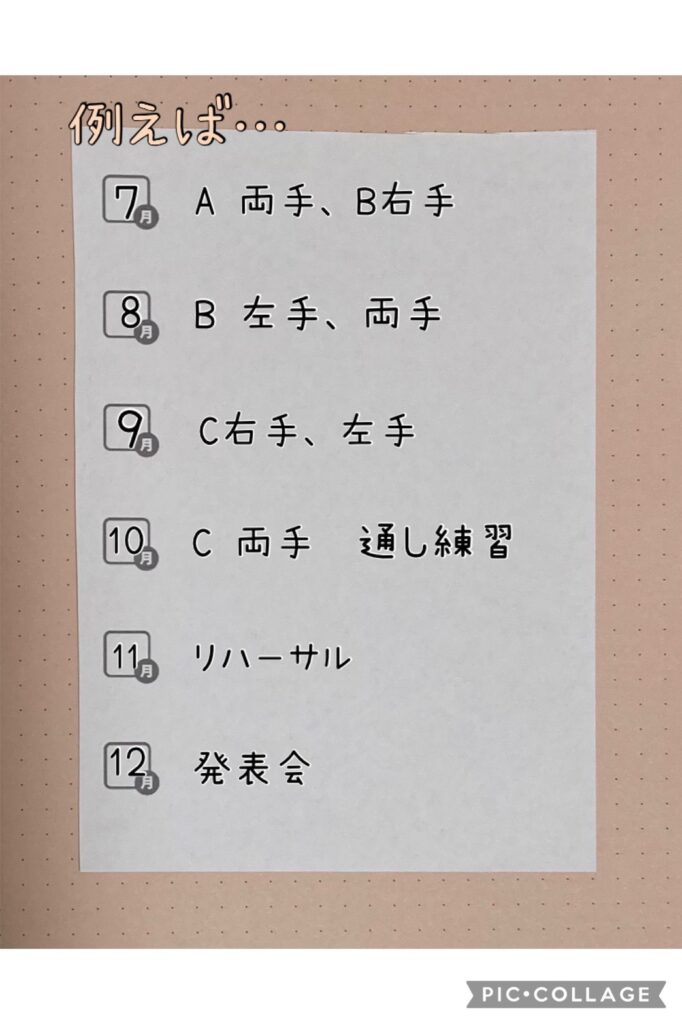 例えば…
7月 A 両手、B右手
8月 B 左手、両手
9月 C右手、左手
10月 C 両手 通し練習
11月 リハーサル
12月 発表会
PIC•COLLAGE